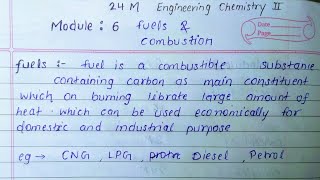 24 M Engineering Chemistry II
Module: 6 fuels &
combustion
Date
Page
fuels :- fuel is a combustible substance
containing carbon as main constituent
which on burning librate large amount of
heat. which can be used economically for
domestric and industrial purpose
eg → CNG, LPG, Diesel, Petrol